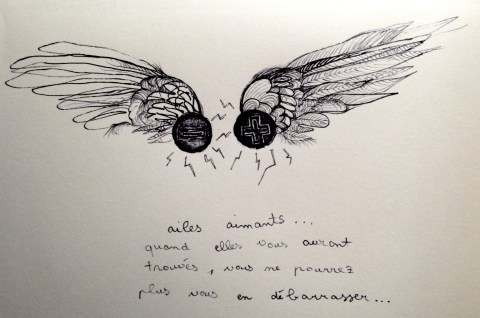 ailes aimants...
quand elles vous auront
trouvés, vous ne pourrez
plus vous en débarrasser...